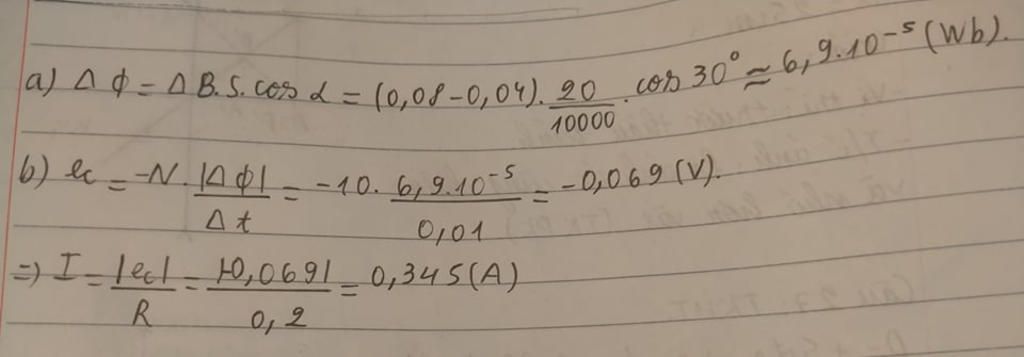 a) Δ ϕ = Δ B.S.cos α = (0,08-0,04). 20/10000 . cos 30° ≃ 6,9.10⁻⁵ (Wb).
b) ec = -N. |Δ ϕ|/Δ t = -10. 6,9.10⁻⁵/0,01 = -0,069 (V).
=) I = |ec|/R = |-0,069|/0,2 = 0,345 (A)